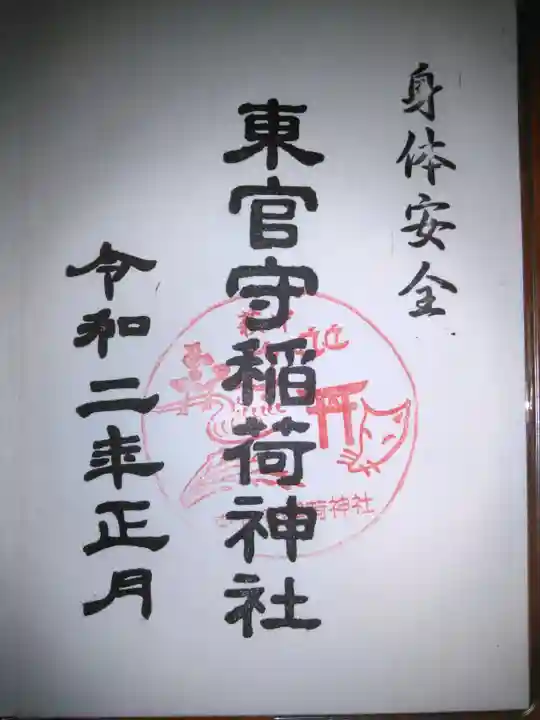 身体安全
東官守稲荷神社
令和二年正月
荷神社